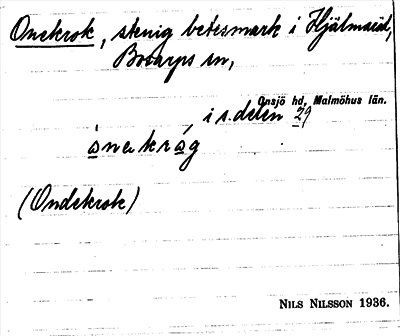 Onekrok, stenig betesmark i Hjälmaröd,
Brearps sn,
Onsjö hd, Malmöhus län.
i s. delen 29
ånakråg
(Ondekrok)
NILS NILSSON 1936.